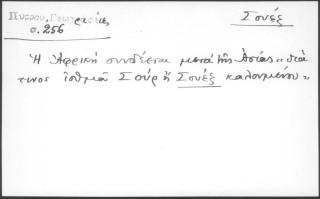 Πύρρου, Γεωγραφίας
Σουέζ
σ. 256
Ἡ Ἀφρική συνδέεται μετά τῆς Ἀσίας «διά
τινος ἰσθμοῦ Σούρ ἤ Σουέζ καλουμένου»